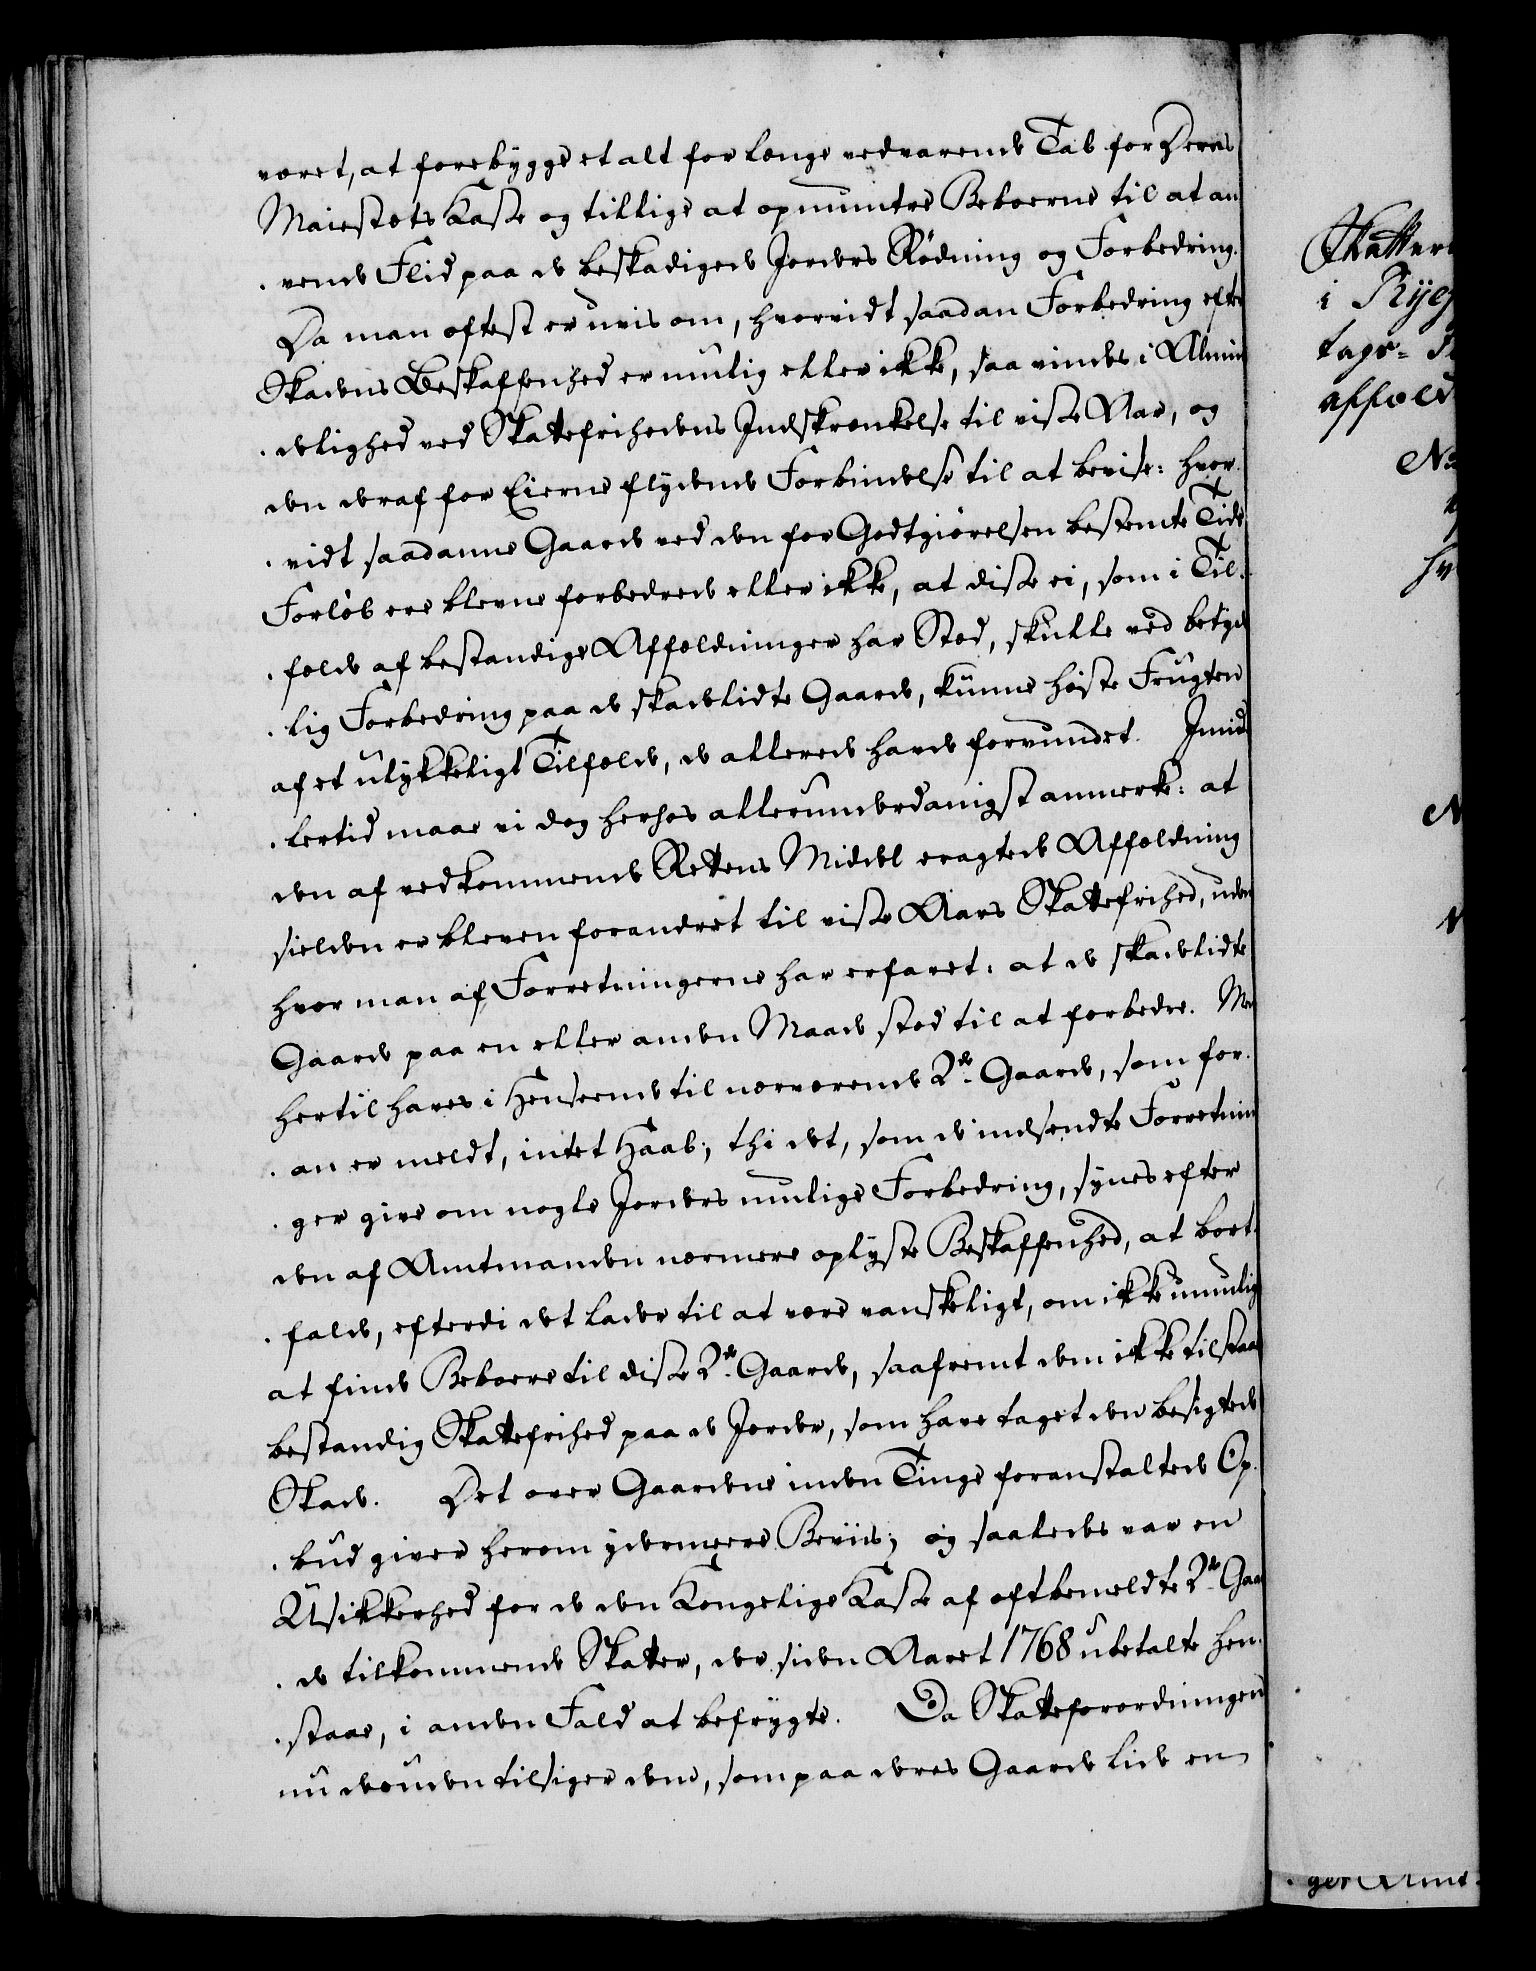 været, at forebygge et alt for længe vedvarende Tab for Deres
Maiestæts Kasse og tillige at opmuntre Beboerne til at an
vende Flid paa de beskadigede Jorders Rødning og Forbedring.
Da man oftest er uvis om, hvorvidt saadan Forbedring efter
Skadens Beskaffenhed er mulig eller ikke, saa vindes i Almin
delighed ved Skattefrihedens Indskrænkelse til visse Aar, og
den deraf for Eierne flydende Forbindelse til at bevise: hvor-
vidt saadanne Gaarde ved den for Godtgiørelsen bestemte Tids
Forløb ere blevne forbedrede eller ikke, at disse ei, som i Til-
fælde af bestandige Affældninger har Sted, skulle ved betyde
lig Forbedring paa de skadelidte Gaarde, kunne høste Frugten
af et ulykkeligt Tilfælde, de allerede havde forvundet. Imid
lertid maae vi dog herhos allerunderdanigst anmerke: at
den af vedkommende Rettens Middel eragtede Affældning
sielden er bleven forandret til visse Aars Skattefrihed, uden
hvor man af Forretningerne har erfaret: at de skadelidte
Gaarde paa en eller anden Maade stod til at forbedre. Men
hertil haves i Henseende til nærværende 2de Gaarde, som for-
an er meldt, intet Haab; thi det, som de indsendte Forretnin
ger give om nogle Jorders mulige Forbedring, synes efter
den af Amtmanden nærmere oplyste Beskaffenhed, at bort-
falde, efterdi det lader til at være vanskeligt, om ikke umuligt
at finde Beboere til disse 2de Gaarde, saafremt dem ikke tilstaaes
bestandig Skattefrihed paa de Jorder, som have taget den besigtede
Skade. Det over Gaardene inden Tinge foranstaltede Op-
bud giver herom ydermeere Beviis; og saaledes var en
Usikkerhed for de den Kongelige Kasse af oftbemeldte 2de Gaar
de tilkommende Skatter, der siden Aaret 1768 ubetalte hen-
staae, i anden Fald at befrygte. Da Skatteforordningen
nu desuden tilsiger dem, som paa deres Gaarde lide en
Skatter
i Ryef
tags=
affæld